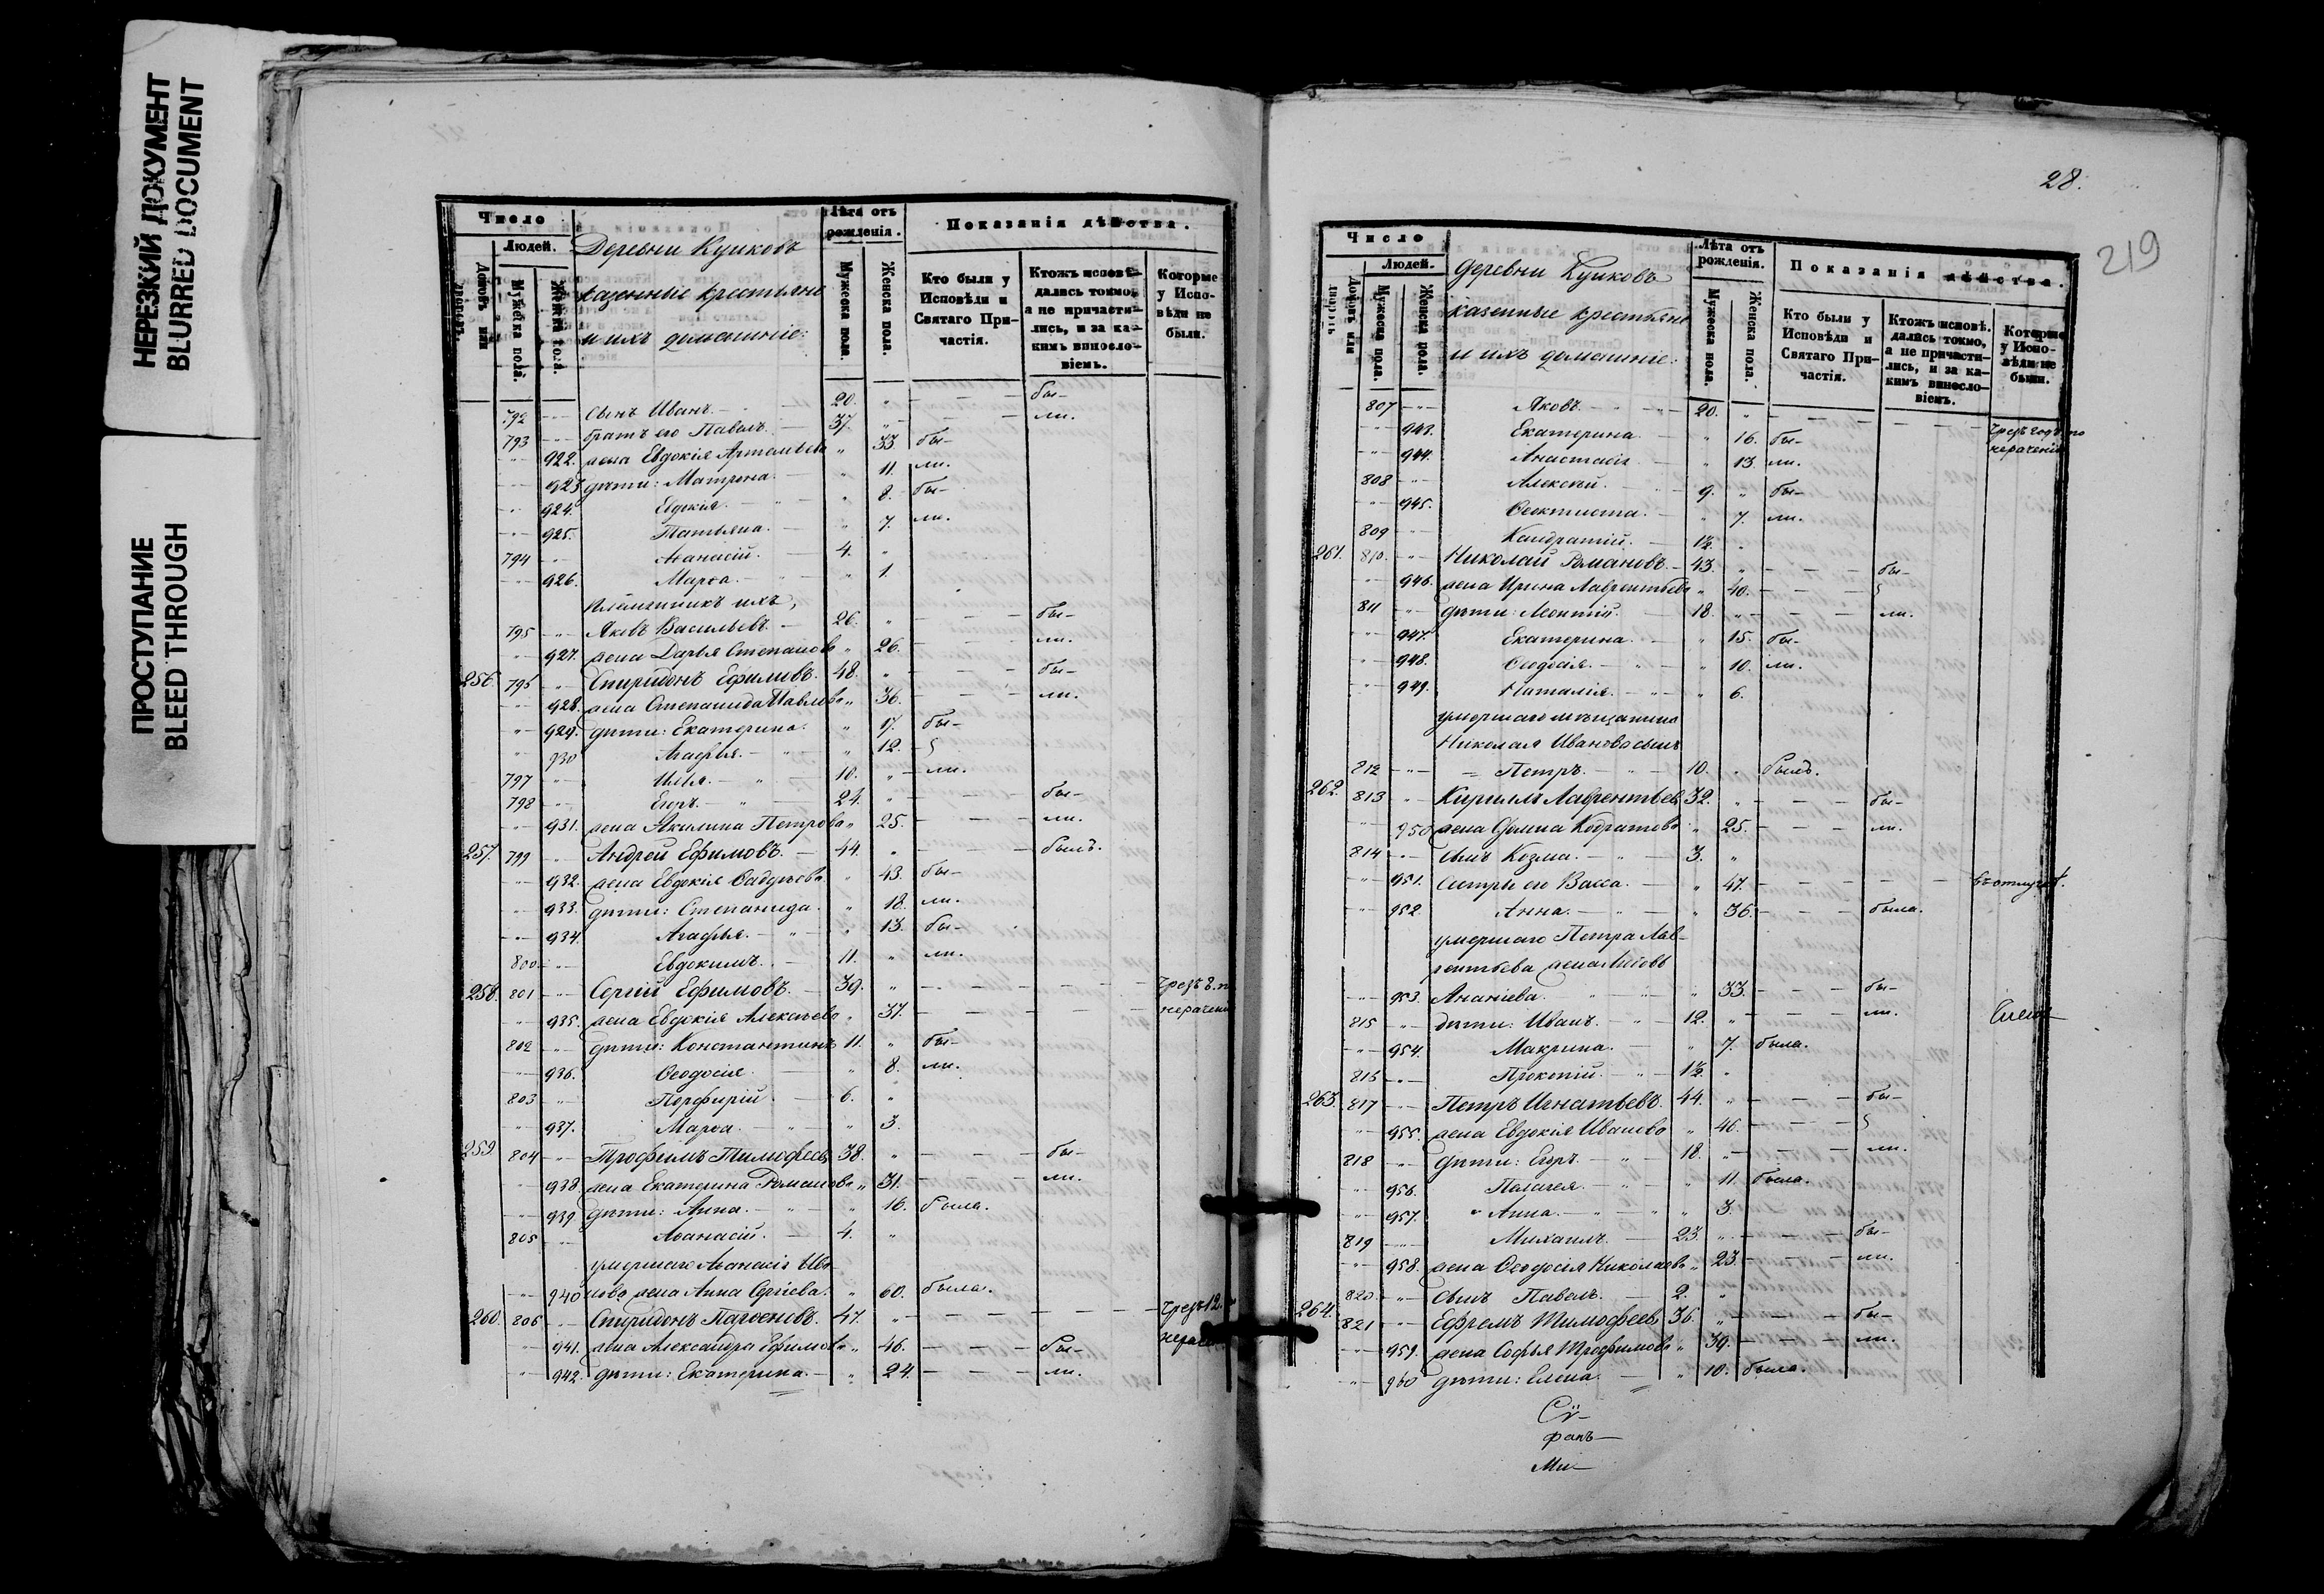 НЕРЕЗКИЙ ДОКУМЕНТ
BLURRED DOCUMENT
ПРОСТУПАНИЕ
BLEED THROUGH
Число
Людей.
Домовъ или дворовъ.
Мужеска пола.
Женска пола.
Деревни Куиковъ
казенные крестьяне
и ихъ домашніе:
Лѣта отъ рожденія.
Мужеска пола.
Женска пола.
Показанія дѣйства.
Кто были у Исповѣди и Святаго Причастія.
Ктожъ исповѣдались токмо, а не причастились, и за какимъ винословіемъ.
Которые у Исповѣди не были.
792 -"- сынъ Иванъ. 20. " — — — бы-
793 -"- братъ его Павелъ. 37. " — — — ли.
-"- 922. жена Евдокія Артемьева " 33 бы-
-"- 923 дѣти: Матрона. " 11. ли.
-"- 924. Евдокія. " 8. бы-
-"- 925. Татьяна. " 7. ли.
794 -"- Аѳанасій. 4. "
-"- 926. Марѳа. " 1.
племянникъ ихъ,
795 -"- Яковъ Васильевъ. 26. " — — — бы-
-"- 927. жена Дарья Степанова " 26. — — — ли.
256. 796 -"- Спиридонъ Ефимовъ. 48. " — — — бы-
-"- 928. жена Степанида Павлова " 36. — — — ли.
-"- 929. дѣти: Екатерина. " 17. бы-
-"- 930 Агафья. " 12. -
797 -"- Илья. 10. " ли.
798 -"- Егоръ. 24. " — — — бы-
-"- 931. жена Акилина Петрова " 25. — — — ли.
257. 799 -"- Андрей Ефимовъ. 44. " — — — былъ.
-"- 932. жена Евдокія Ѳаддѣева. " 43. бы-
-"- 933. дѣти: Степанида. " 18. ли.
-"- 934. Агафья. " 13. бы-
800 -"- Евдокимъ. 11. " ли.
258. 801 -"- Сергій Ефимовъ. 39. " — — — — — Чрезъ
-"- 935. жена Евдокія Алексѣева " 37. — — — — — нерачені
802 -"- дѣти: Константинъ 11. " бы-
-"- 936. Ѳеодосія " 8. ли.
803 -"- Порфирій. 6. "
-"- 937. Марѳа. " 3.
259. 804 -"- Трофимъ Тимофеевъ 38. " — — — бы-
-"- 938. жена Екатерина Романова " 31. — — — ли.
-"- 939 дѣти: Анна. " 16. была.
805 -"- Аѳанасій. 4. "
умершаго Аѳанасія Ива-
-"- 940 нова жена Анна Сергіева. " 60. была.
260. 806 -"- Спиридонъ Парѳеновъ. 47. " — — — — — Чрезъ 12.
-"- 941. жена Александра Ефимова " 46. — — — бы-
-"- 942. дѣти: Екатерина. " 24. — — — ли.
28.
219
Число
Людей.
Домовъ или дворовъ.
Мужеска пола.
Женска пола.
Деревни Куиковъ
казенные крестьяне
и ихъ домашніе:
Лѣта отъ рожденія.
Мужеска пола.
Женска пола.
Показанія дѣйства.
Кто были у Исповѣди и Святаго Причастія.
Ктожъ исповѣдались токмо, а не причастились, и за какимъ винословіемъ.
Которые у Исповѣди не были.
807 -"- Яковъ. 20. " — — — — — Чрезъ годъ по
-"- 943. Екатерина. " 16. бы- нерачені
-"- 944. Анастасія " 13. ли.
808 -"- Алексѣй. 9. " бы-
-"- 945. Ѳеоктиста. " 7. ли.
809 -"- Кандратій. 1½. "
261. 810. -"- Николай Романовъ. 43. " — — — бы-
-"- 946. жена Ирина Лаврентьева " 40. — — —
811 -"- дѣти: Леонтій. 18. " — — — ли.
-"- 947. Екатерина. " 15. бы-
-"- 948. Ѳеодосія. " 10. ли.
-"- 949. Наталія. " 6.
умершаго мѣщанина
Николая Иванова сынъ
812 -"- Петръ. 10. " былъ.
262. 813 -"- Кириллъ Лаврентьевъ 32. " — — — бы-
-"- 950 жена Ѳомина Кодратова " 25. — — — ли.
814 -"- сынъ Козма. 3. "
-"- 951. Сестры его Васса. " 47. — — — — — въ отлучкѣ.
-"- 952. Анна. " 36. — — — была.
умершаго Петра Лав-
рентьева жена Любовь
-"- 953. Ананіева. " 33. — — — бы-
815 -"- дѣти: Иванъ. 12. " — — — ли.
-"- 954. Макрина. " 7. была.
816 -"- Прокопій. 1½. "
263. 817 -"- Петръ Игнатьевъ. 44. " — — — бы-
-"- 955. жена Евдокія Иванова " 46. — — —
818 -"- дѣти: Егоръ. 18. " — — — ли.
-"- 956. Пелагея. " 11. была.
-"- 957. Анна. " 3.
819 -"- Михаилъ. 23. " — — — бы-
-"- 958. жена Ѳеодосія Николаева " 23. — — — ли.
820. -"- сынъ Павелъ. 2. "
264. 821 -"- Ефремъ Тимофеевъ 36. " — — — бы-
-"- 959. жена Софья Трофимова " 39. — — — ли.
-"- 960 дѣти: Елена. " 10. была.